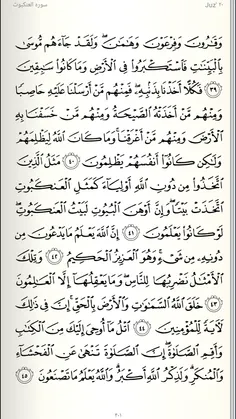 سورة العنكبوت
جزء ٢٠
وَقَٰرُونَ وَفِرْعَوْنَ وَهَٰمَٰنَ ۖ وَلَقَدْ جَآءَهُم مُّوسَىٰ
بِٱلْبَيِّنَٰتِ فَٱسْتَكْبَرُوا۟ فِى ٱلْأَرْضِ وَمَا كَانُوا۟ سَٰبِقِينَ
٣٩ فَكُلًّا أَخَذْنَا بِذَنۢبِهِۦ ۖ فَمِنْهُم مَّنْ أَرْسَلْنَا عَلَيْهِ حَاصِبًا
وَمِنْهُم مَّنْ أَخَذَتْهُ ٱلصَّيْحَةُ وَمِنْهُم مَّنْ خَسَفْنَا بِهِ
ٱلْأَرْضَ وَمِنْهُم مَّنْ أَغْرَقْنَا ۚ وَمَا كَانَ ٱللَّهُ لِيَظْلِمَهُمْ
وَلَٰكِن كَانُوٓا۟ أَنفُسَهُمْ يَظْلِمُونَ ٤٠ مَثَلُ ٱلَّذِينَ
ٱتَّخَذُوا۟ مِن دُونِ ٱللَّهِ أَوْلِيَآءَ كَمَثَلِ ٱلْعَنكَبُوتِ
ٱتَّخَذَتْ بَيْتًا ۖ وَإِنَّ أَوْهَنَ ٱلْبُيُوتِ لَبَيْتُ ٱلْعَنكَبُوتِ ۖ
لَوْ كَانُوا۟ يَعْلَمُونَ ٤١ إِنَّ ٱللَّهَ يَعْلَمُ مَا يَدْعُونَ مِن
دُونِهِۦ مِن شَىْءٍ ۚ وَهُوَ ٱلْعَزِيزُ ٱلْحَكِيمُ ٤٢ وَتِلْكَ
ٱلْأَمْثَٰلُ نَضْرِبُهَا لِلنَّاسِ ۖ وَمَا يَعْقِلُهَآ إِلَّا ٱلْعَٰلِمُونَ
٤٣ خَلَقَ ٱللَّهُ ٱلسَّمَٰوَٰتِ وَٱلْأَرْضَ بِٱلْحَقِّ ۚ إِنَّ فِى ذَٰلِكَ
لَءَايَةً لِّلْمُؤْمِنِينَ ٤٤ ٱتْلُ مَآ أُوحِىَ إِلَيْكَ مِنَ ٱلْكِتَٰبِ
وَأَقِمِ ٱلصَّلَوٰةَ ۖ إِنَّ ٱلصَّلَوٰةَ تَنْهَىٰ عَنِ ٱلْفَحْشَآءِ
وَٱلْمُنكَرِ ۗ وَلَذِكْرُ ٱللَّهِ أَكْبَرُ ۗ وَٱللَّهُ يَعْلَمُ مَا تَصْنَعُونَ ٤٥
٤٠١